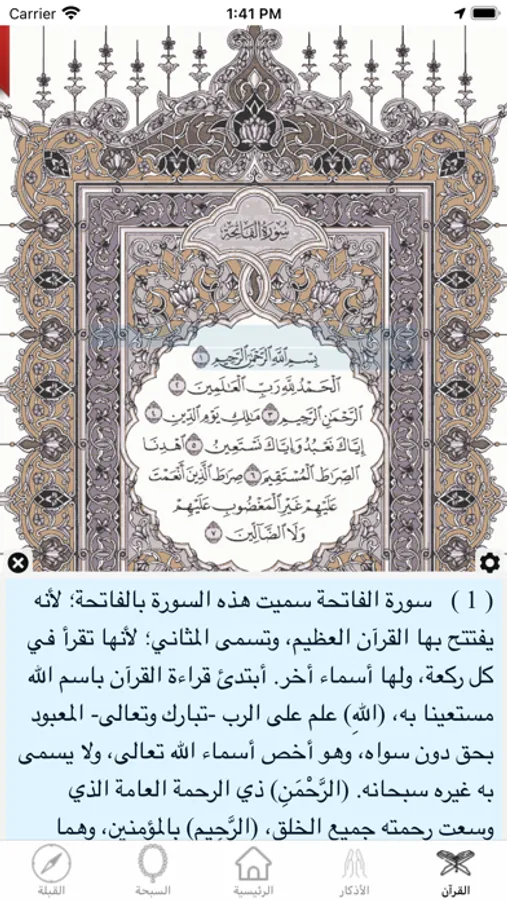 Carrier 1:41 PM
سُورَةُ الفَاتِحَةِ
بِسْمِ ٱللَّهِ ٱلرَّحْمَٰنِ ٱلرَّحِيمِ ١
ٱلْحَمْدُ لِلَّهِ رَبِّ ٱلْعَٰلَمِينَ ٢
ٱلرَّحْمَٰنِ ٱلرَّحِيمِ ٣ مَٰلِكِ يَوْمِ ٱلدِّينِ ٤
إِيَّاكَ نَعْبُدُ وَإِيَّاكَ نَسْتَعِينُ ٥ ٱهْدِنَا
ٱلصِّرَٰطَ ٱلْمُسْتَقِيمَ ٦ صِرَٰطَ ٱلَّذِينَ أَنْعَمْتَ
عَلَيْهِمْ غَيْرِ ٱلْمَغْضُوبِ عَلَيْهِمْ
وَلَا ٱلضَّآلِّينَ ٧
( 1 ) سورة الفاتحة سميت هذه السورة بالفاتحة؛ لأنه
يفتتح بها القرآن العظيم، وتسمى المثاني؛ لأنها تقرأ في
كل ركعة، ولها أسماء أخر. أبتدئ قراءة القرآن باسم الله
مستعينا به، (اللهِ) علم على الرب -تبارك وتعالى- المعبود
بحق دون سواه، وهو أخص أسماء الله تعالى، ولا يسمى
به غيره سبحانه. (الرَّحْمَنِ) ذي الرحمة العامة الذي
وسعت رحمته جميع الخلق، (الرَّحِيمِ) بالمؤمنين، وهما
القرآن الأذكار الرئيسية السبحة القبلة